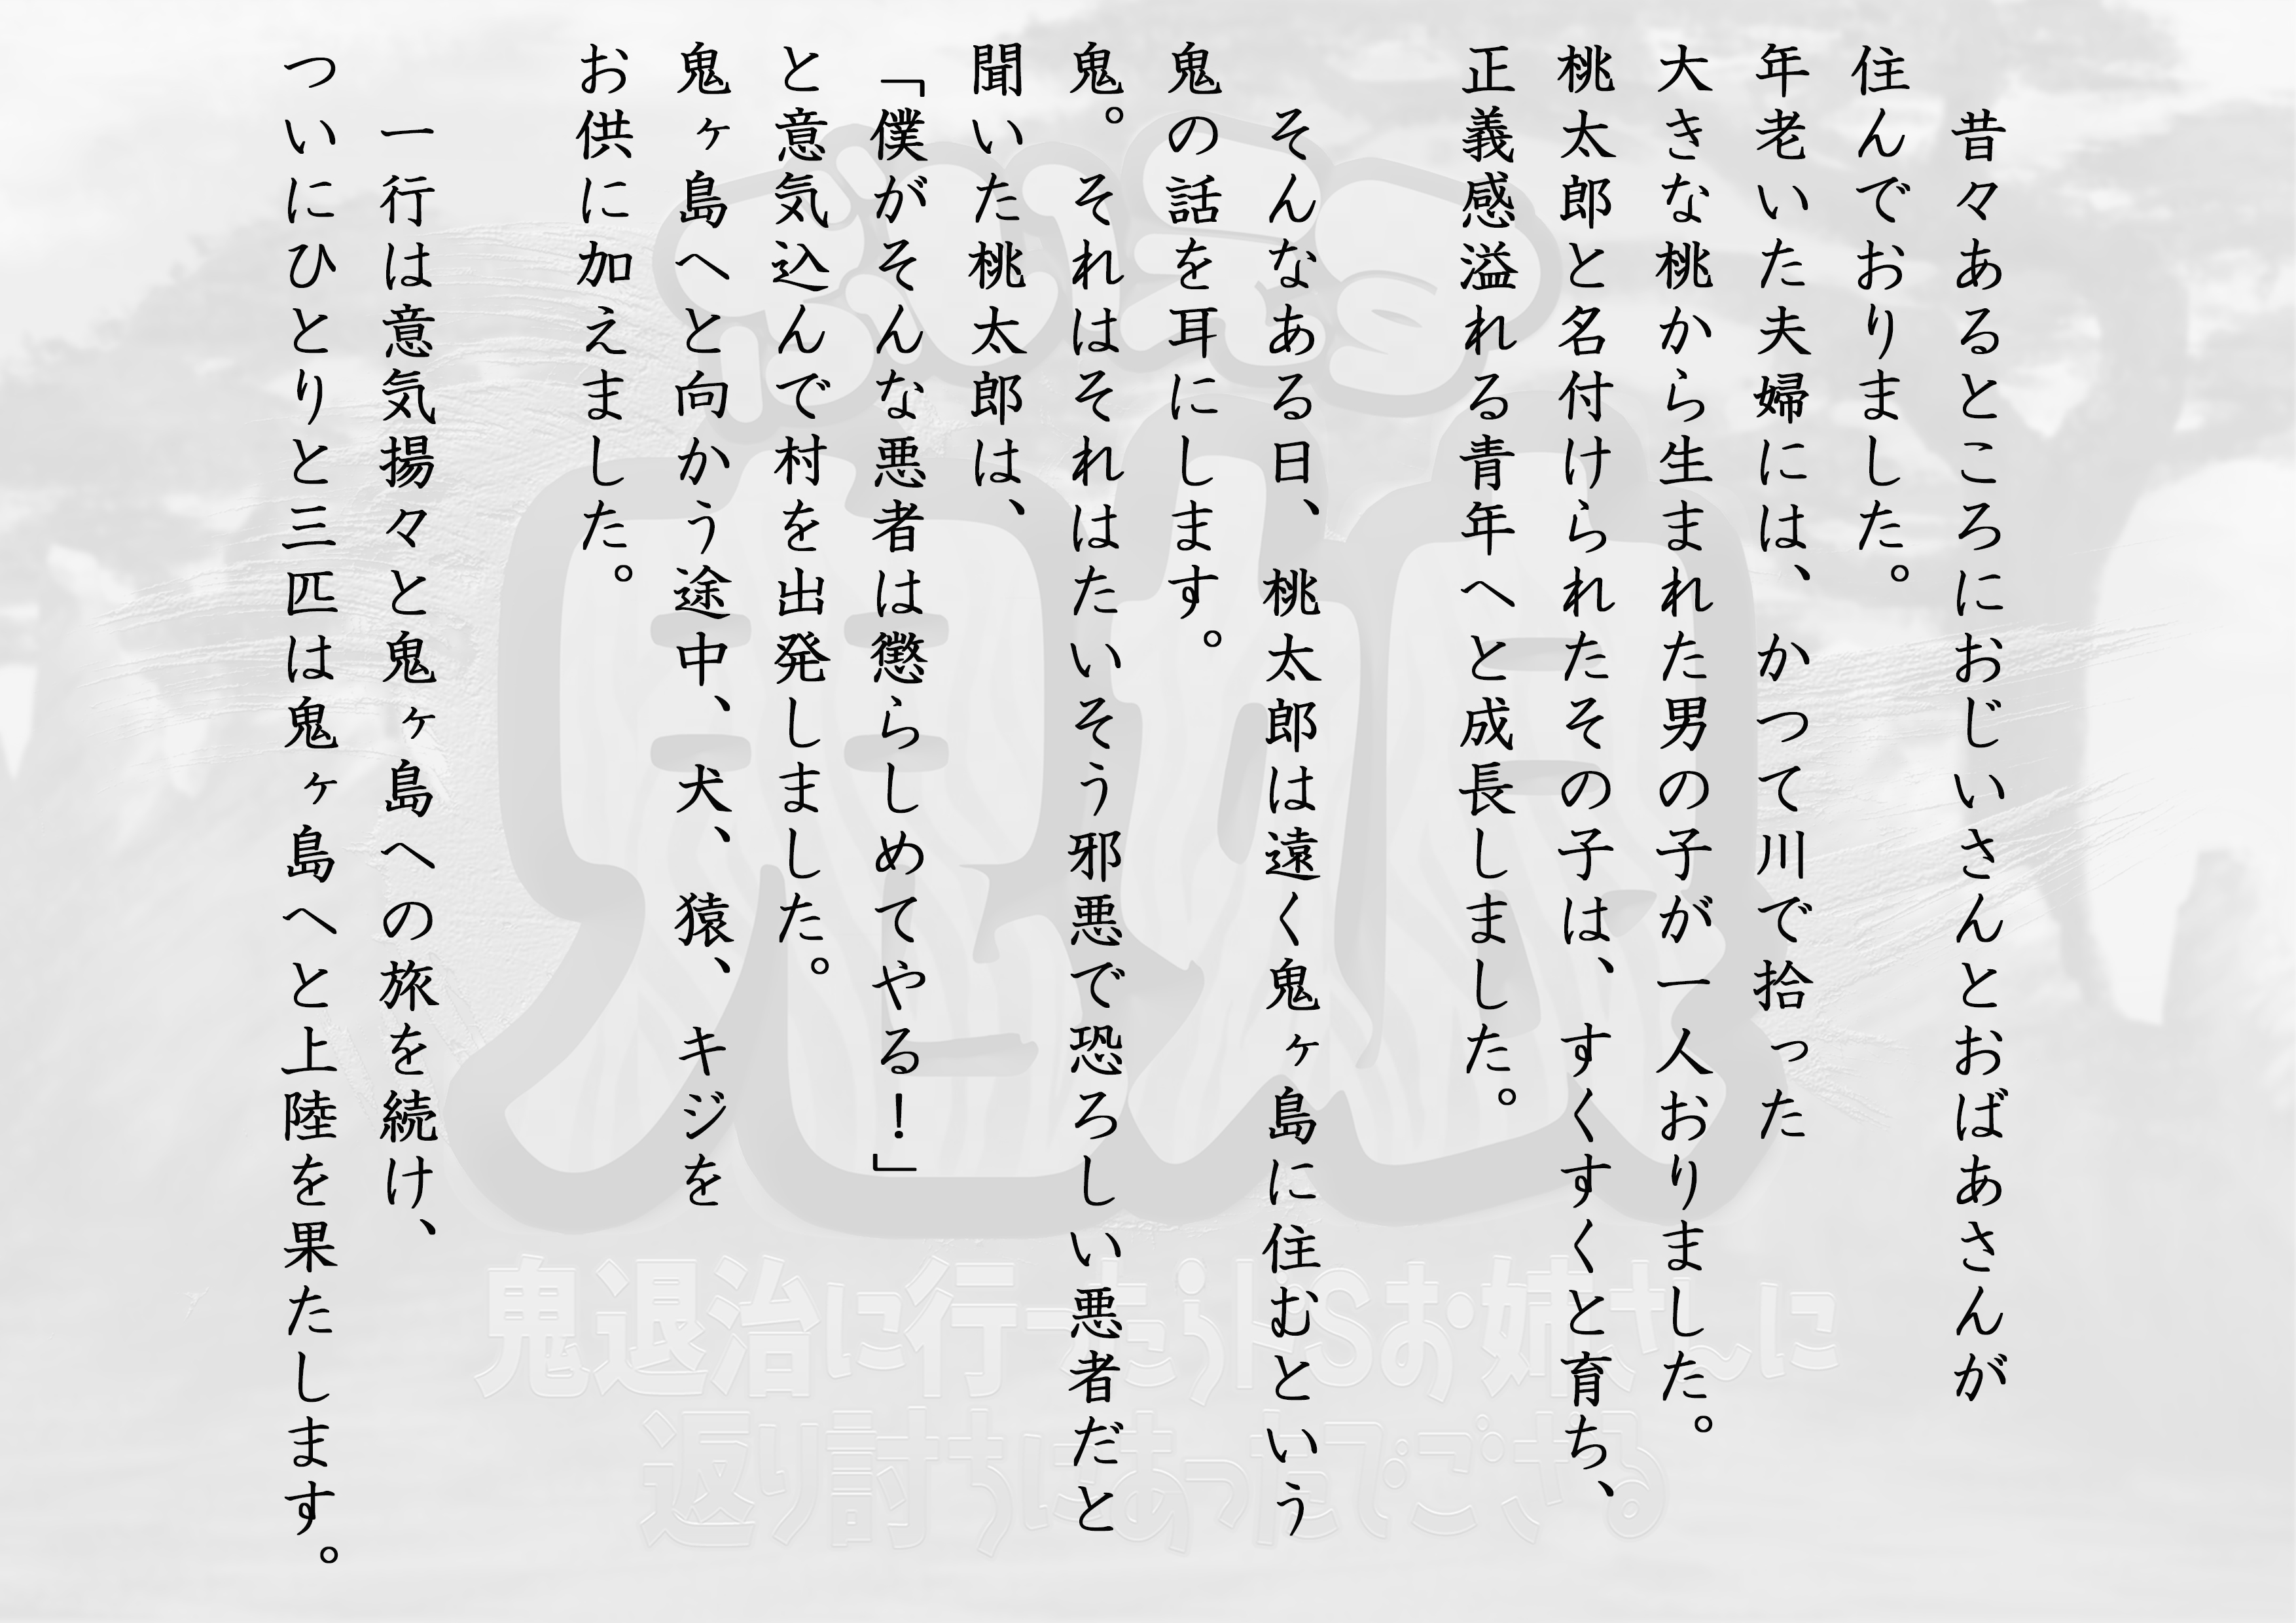 昔々あるところにおじいさんとおばあさんが
住んでおりました。
年老いた夫婦には、かつて川で拾った
大きな桃から生まれた男の子が一人おりました。
桃太郎と名付けられたその子は、すくすくと育ち、
正義感溢れる青年へと成長しました。
そんなある日、桃太郎は遠く鬼ヶ島に住むという
鬼の話を耳にします。
鬼。それはそれはたいそう邪悪で恐ろしい悪者だと
聞いた桃太郎は、
「僕がそんな悪者は懲らしめてやる！」
と意気込んで村を出発しました。
鬼ヶ島へと向かう途中、犬、猿、キジを
お供に加えました。
一行は意気揚々と鬼ヶ島への旅を続け、
ついにひとりと三匹は鬼ヶ島へと上陸を果たします。
鬼娘
鬼退治に行ったらドSお姉さんに
返り討ちにあったでござる